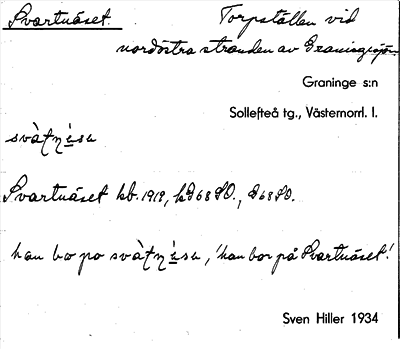 Svartnäset. Torpställen vid
nordöstra stranden av Graningesjön.
Graninge s:n
Sollefteå tg., Västernorrl. l.
Svartnäset kb. 1919, kD 68 SO., D 68 SO.
han bor po 'han bor på Svartnäset'.
Sven Hiller 1934